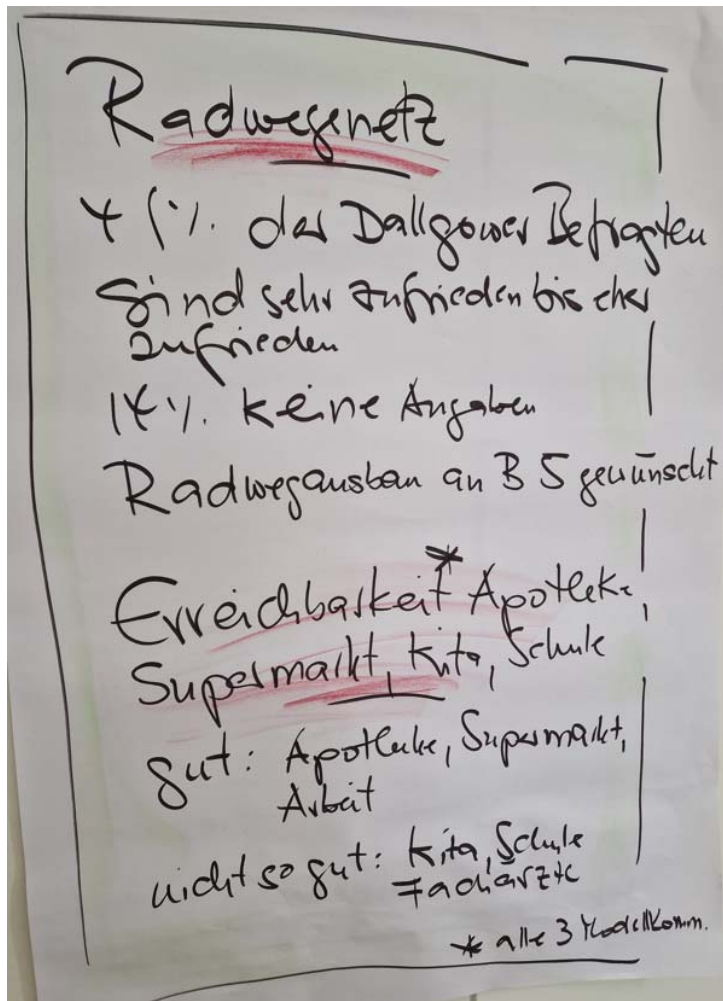 Radwegenetz
% der Dallgower Befragten
sind sehr zufrieden bis eher
zufrieden
% keine Angaben
Radwegausbau an B 5 gewünscht
Erreichbarkeit* Apotheke,
Supermarkt, Kita, Schule
gut: Apotheke, Supermarkt,
Arbeit
nicht so gut: Kita, Schule
Fachärzte
* alle 3 Modellkomm.